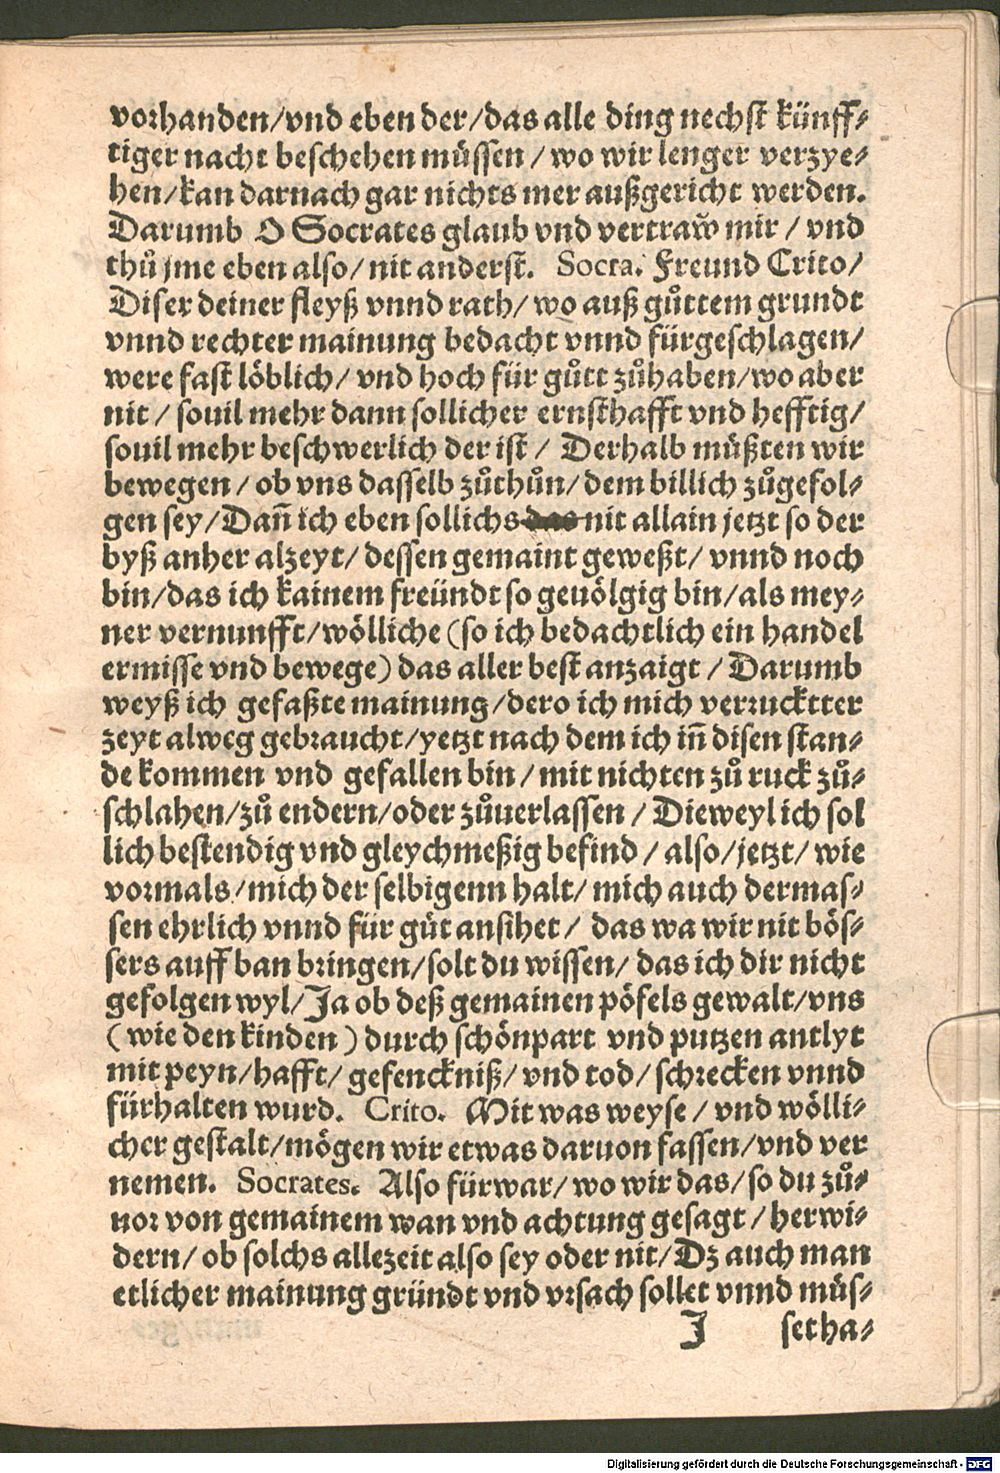 vorhanden/vnd eben der/das alle ding nechst künff⸗
tiger nacht beschehen müssen / wo wir lenger verzye⸗
hen/kan darnach gar nichts mer außgericht werden.
Darumb O Socrates glaub vnd vertraw̃ mir / vnd
thuͦ jme eben also/ nit anderst. Socra. Freund Crito/
Diser deiner fleyß vnnd rath/ wo auß guͦttem grundt
vnnd rechter mainung bedacht vnnd fürgeschlagen/
were fast löblich/ vnd hoch für guͦtt zuͦhaben/wo aber
nit / souil mehr dann sollicher ernsthafft vnd hefftig/
souil mehr beschwerlich der ist / Derhalb müßten wir
bewegen / ob vns dasselb zuͦthuͦn/ dem billich zuͦgefol⸗
gen sey/Dañ ich eben sollichs das nit allain jetzt so der
byß anher alzeyt/ dessen gemaint geweßt/ vnnd noch
bin/das ich kainem freündt so geuölgig bin/als mey⸗
ner vernunfft/wölliche (so ich bedachtlich ein handel
ermisse vnd bewege) das aller best anzaigt / Darumb
weyß ich gefaßte mainung/dero ich mich verrucktter
zeyt alweg gebraucht/yetzt nach dem ich iñ disen stan⸗
de kommen vnd gefallen bin / mit nichten zuͦ ruck zuͦ⸗
schlahen/zuͦ endern/oder zuͦuerlassen / Dieweyl ich sol
lich bestendig vnd gleychmeßig befind / also/jetzt/ wie
vormals/mich der selbigenn halt/ mich auch dermas⸗
sen ehrlich vnnd für guͦt ansihet / das wa wir nit bös⸗
sers auff ban bringen/solt du wissen/ das ich dir nicht
gefolgen wyl/Ja ob deß gemainen pöfels gewalt/vns
( wie den kinden ) durch schönpart vnd putzen antlyt
mit peyn/hafft/ gefenckniß/ vnd tod/ schrecken vnnd
fürhalten wurd. Crito. Mit was weyse / vnd wölli⸗
cher gestalt/mögen wir etwas daruon fassen/vnd ver
nemen. Socrates. Also fürwar/ wo wir das/ so du zuͦ⸗
nor von gemainem wan vnd achtung gesagt / herwi⸗
dern/ ob solchs allezeit also sey oder nit/Dz auch man
etlicher mainung gründt vnd vrsach sollet vnnd müs⸗
J set ha⸗
Digitalisierung gefördert durch die Deutsche Forschungsgemeinschaft - DFG